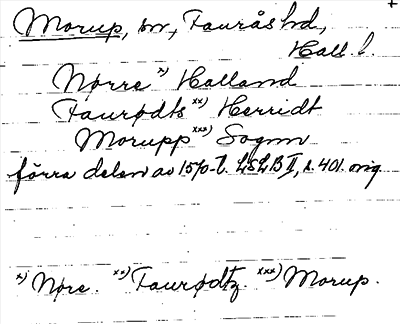 Morup, sn, Faurås hd,
Hall. l.
Nørre x) Halland
Faurødts xx) Herridt
Morupp xxx) Sognn
förra delen av 1570-t. LSLB II, s. 401. orig
x) Nøre. xx) Faurødtz. xxx) Morup.